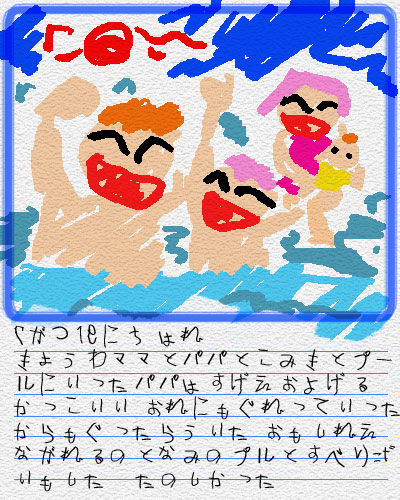 8がつ18にち はれ
きょうわママとパパとこみきとプー
ルにいったパパはすげえおよげる
かっこいい おれにもぐれっていった
からもぐったらういた おもしれえ
ながれるのとなみのプルとすべりだ
いもした たのしかった